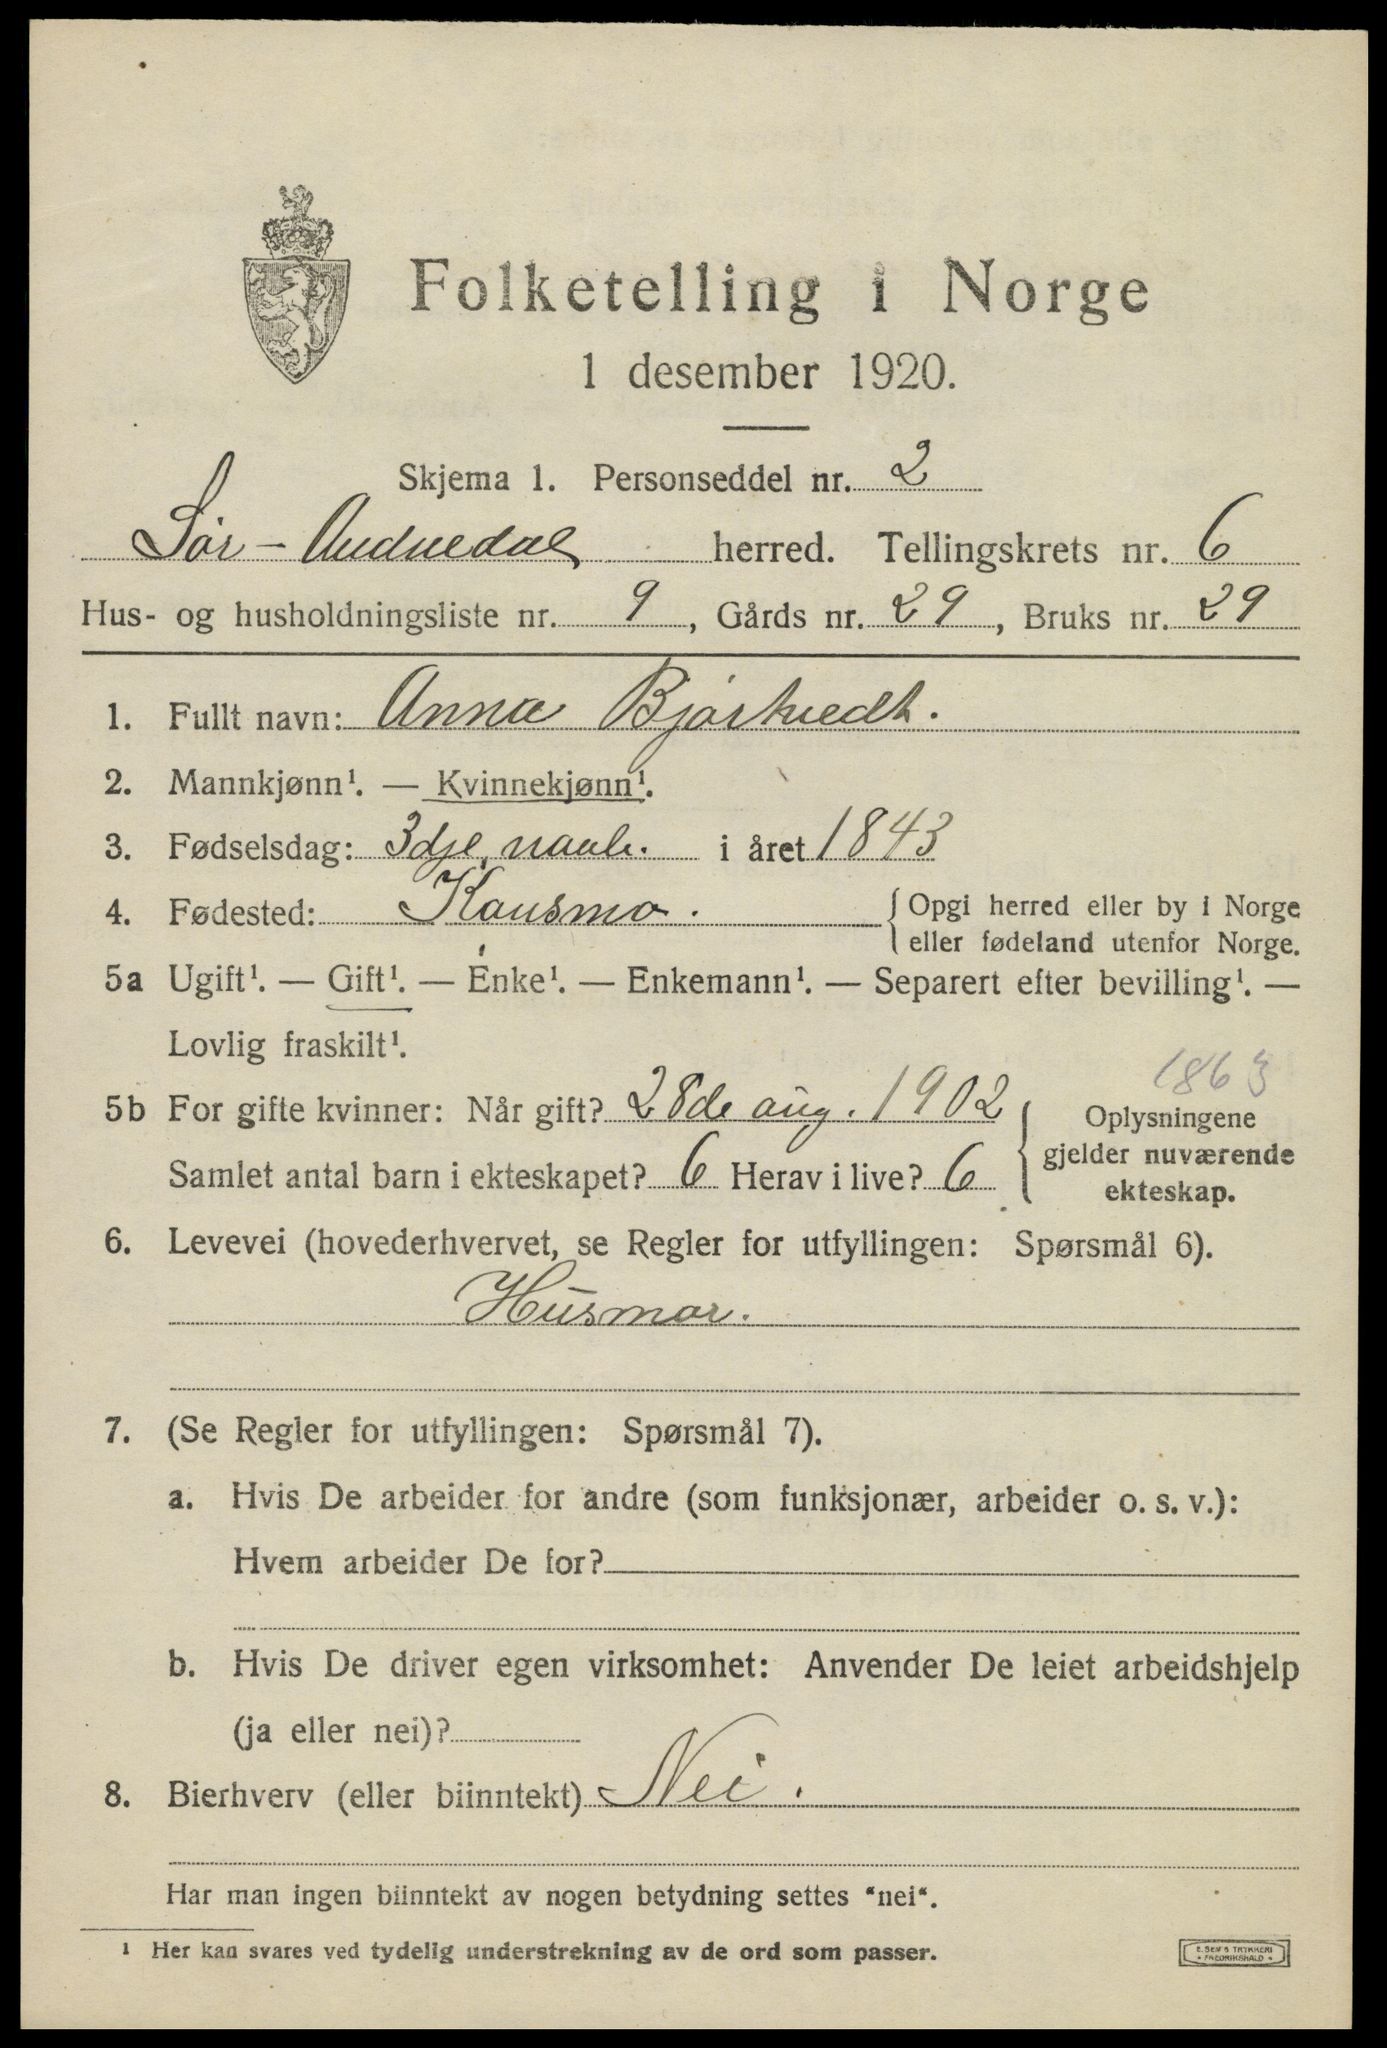 Folketelling i Norge
1 desember 1920.
Skjema 1. Personseddel nr. 2
Sør-Audnedal herred. Tellingskrets nr. 6
Hus- og husholdningsliste nr. 9, Gårds nr. 29, Bruks nr. 29
1. Fullt navn: Anna Bjørkvedt.
2. Mannkjønn¹. — Kvinnekjønn¹.
3. Fødselsdag: 3dje i året 1843
4. Fødested: { Opgi herred eller by i Norge
eller fødeland utenfor Norge.
5a Ugift¹. — Gift¹. — Enke¹. — Enkemann¹. — Separert efter bevilling¹. —
Lovlig fraskilt¹.
1863
5b For gifte kvinner: Når gift? 28de aug. 1902 { Oplysningene
gjelder nuværende
ekteskap.
Samlet antal barn i ekteskapet? 6 Herav i live? 6
6. Levevei (hovederhvervet, se Regler for utfyllingen: Spørsmål 6).
Husmor.
7. (Se Regler for utfyllingen: Spørsmål 7).
a. Hvis De arbeider for andre (som funksjonær, arbeider o. s. v.):
Hvem arbeider De for?
b. Hvis De driver egen virksomhet: Anvender De leiet arbeidshjelp
(ja eller nei)?
8. Bierhverv (eller biinntekt) Nei.
Har man ingen biinntekt av nogen betydning settes "nei".
¹ Her kan svares ved tydelig understrekning av de ord som passer.
E. SEM'S TRYKKERI
FREDRIKSHALD